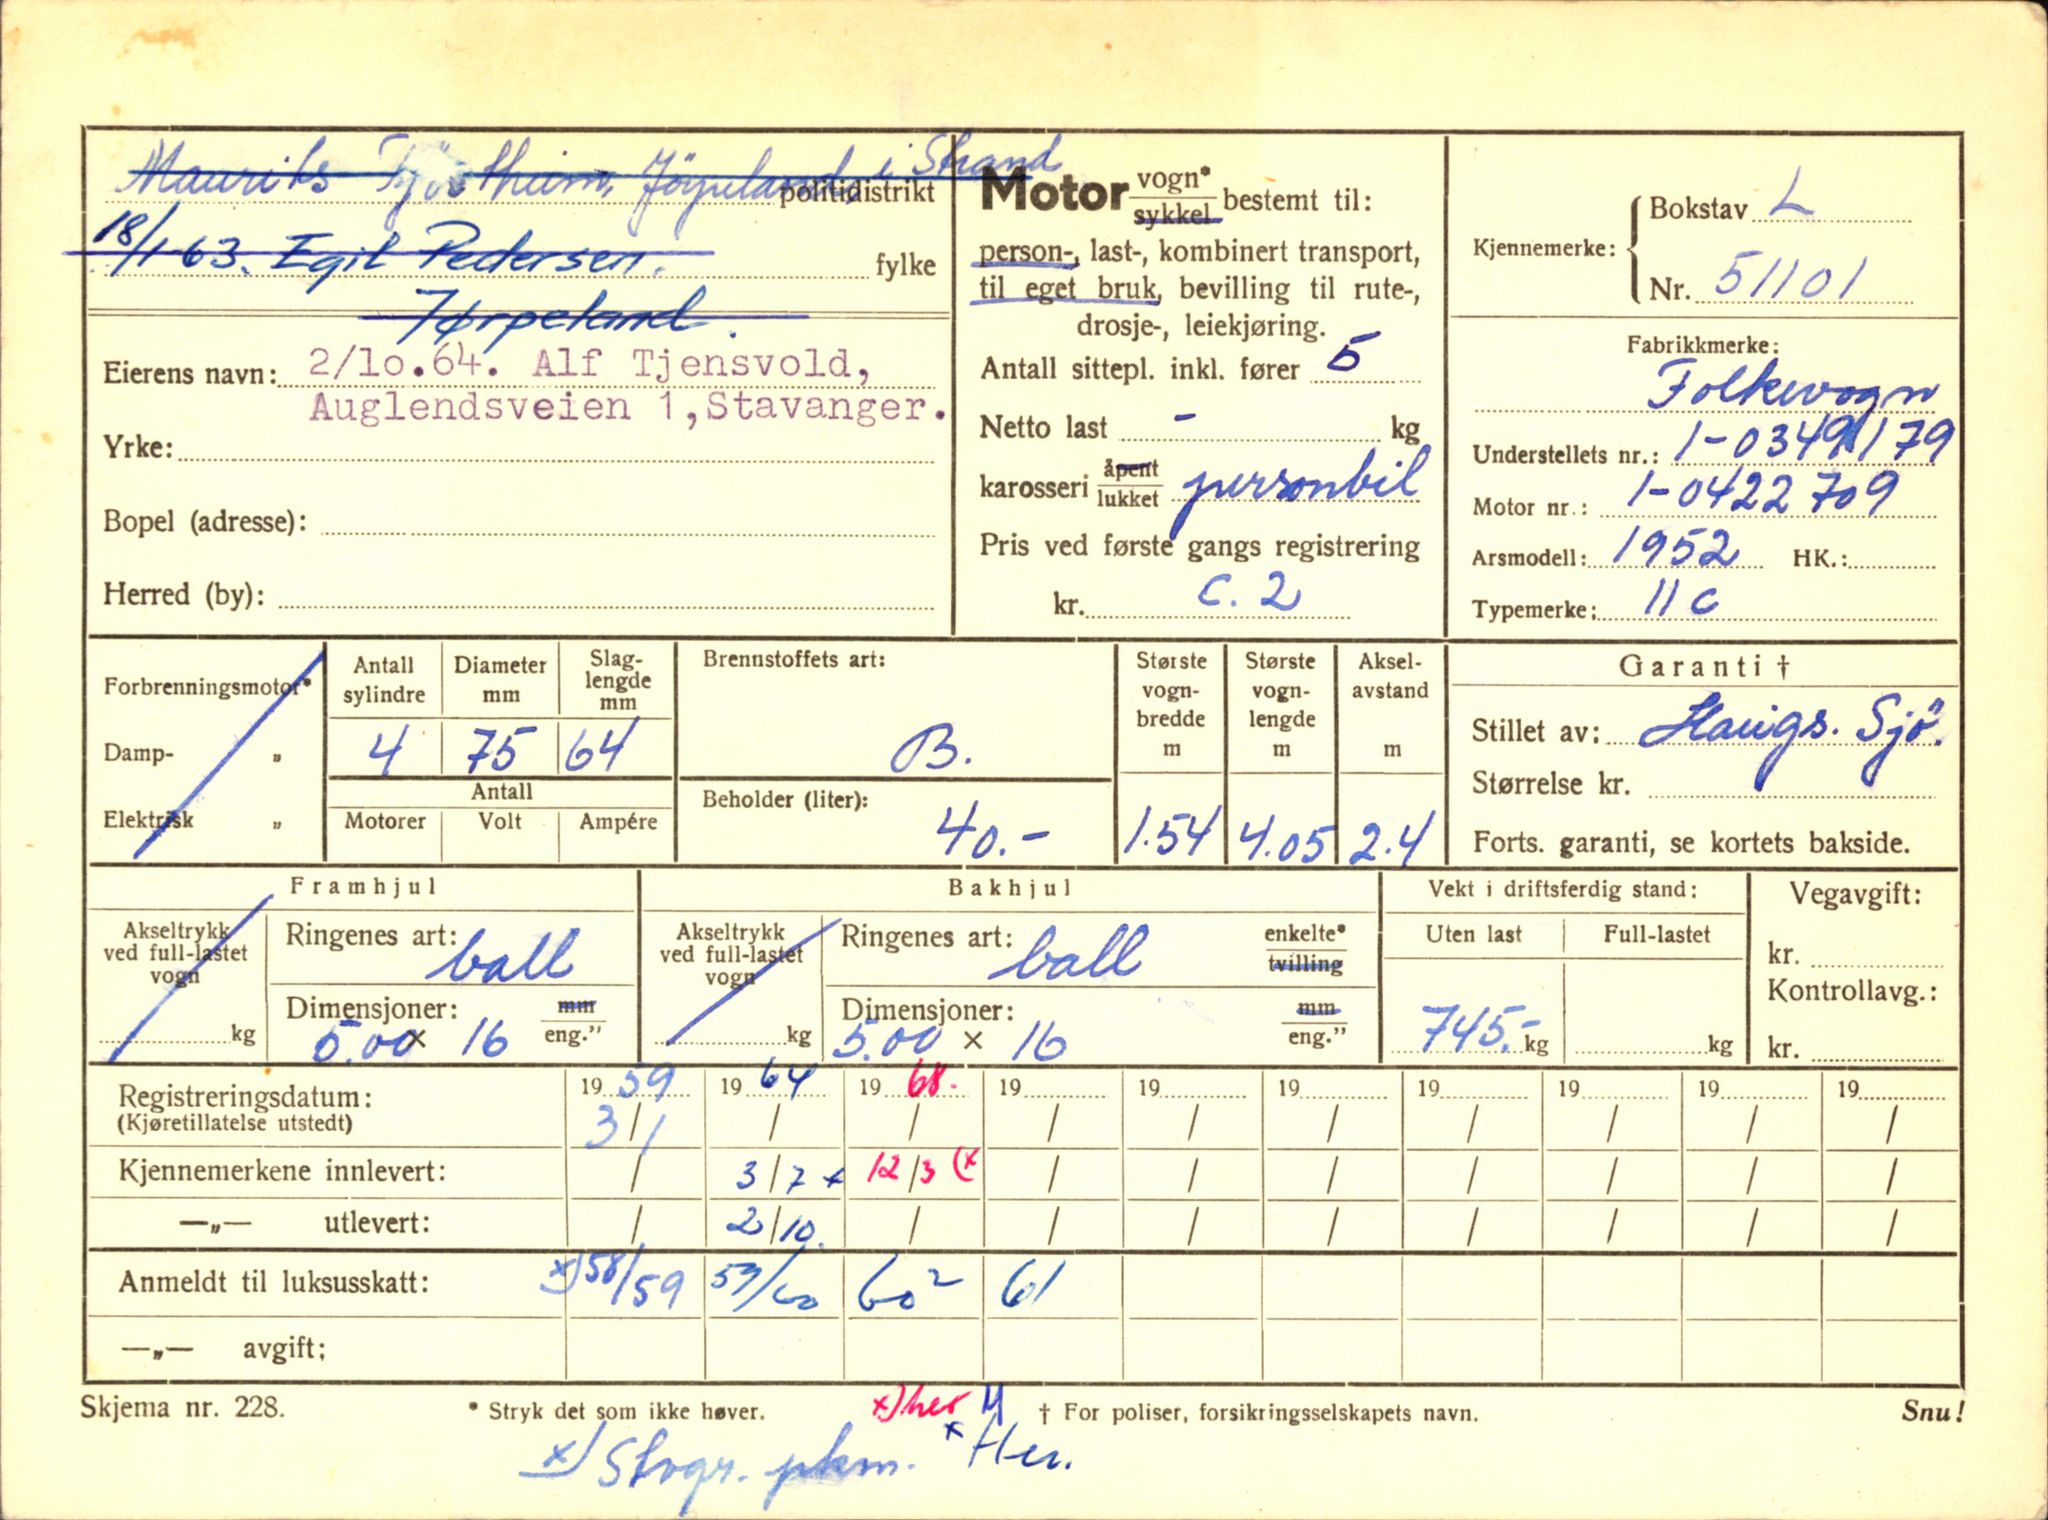 Maurits Tjøstheim, Jørpeland i Strand
politidistrikt
18/1 63. Egil Pedersen.
fylke
Jørpeland.
Eierens navn: 2/lo.64. Alf Tjensvold,
Auglendsveien 1, Stavanger.
Yrke:
Bopel (adresse):
Herred (by):
Motor vogn* sykkel bestemt til:
person-, last-, kombinert transport,
til eget bruk, bevilling til rute-,
drosje-, leiekjøring.
Antall sittepl. inkl. fører 5
Netto last - kg
karosseri åpent lukket personbil
Pris ved første gangs registrering
kr. C. 2
Kjennemerke: Bokstav L
Nr. 51101
Fabrikkmerke:
Folkevogn
Understellets nr.: 1-0349179
Motor nr.: 1-0422709
Arsmodell: 1952 HK.:
Typemerke: 11 C
Forbrenningsmotor*
Damp- „
Elektrisk „
Antall sylindre Diameter mm Slaglengde mm
4 75 64
Antall
Motorer Volt Ampére
Brennstoffets art:
B.
Beholder (liter):
40.-
Største vognbredde m Største vognlengde m Akselavstand m
1.54 4.05 2.4
Garanti †
Stillet av: Haugs. Sjö.
Størrelse kr.
Forts. garanti, se kortets bakside.
Framhjul
Akseltrykk ved full-lastet vogn
kg
Ringenes art: ball
Dimensjoner: mm
5.00 x 16 eng."
Bakhjul
Akseltrykk ved full-lastet vogn
kg
Ringenes art: ball enkelte* tvilling
Dimensjoner: mm
5.00 x 16 eng."
Vekt i driftsferdig stand:
Uten last Full-lastet
745.- kg kg
Vegavgift:
kr.
Kontrollavg.:
kr.
Registreringsdatum: 19 59 19 64 19 68. 19 19 19 19 19 19 19
(Kjøretillatelse utstedt) 3/1 / / / / / / / / /
Kjennemerkene innlevert: / 3/7 x 12/3 (x / / / / / / /
—„— utlevert: / 2/10. / / / / / / / /
Anmeldt til luksusskatt: x) 58/59 59/60 60² 61
—„— avgift:
Skjema nr. 228. * Stryk det som ikke høver. x) her † For poliser, forsikringsselskapets navn. Snu!
x) Stvgr. pkm. x Her.